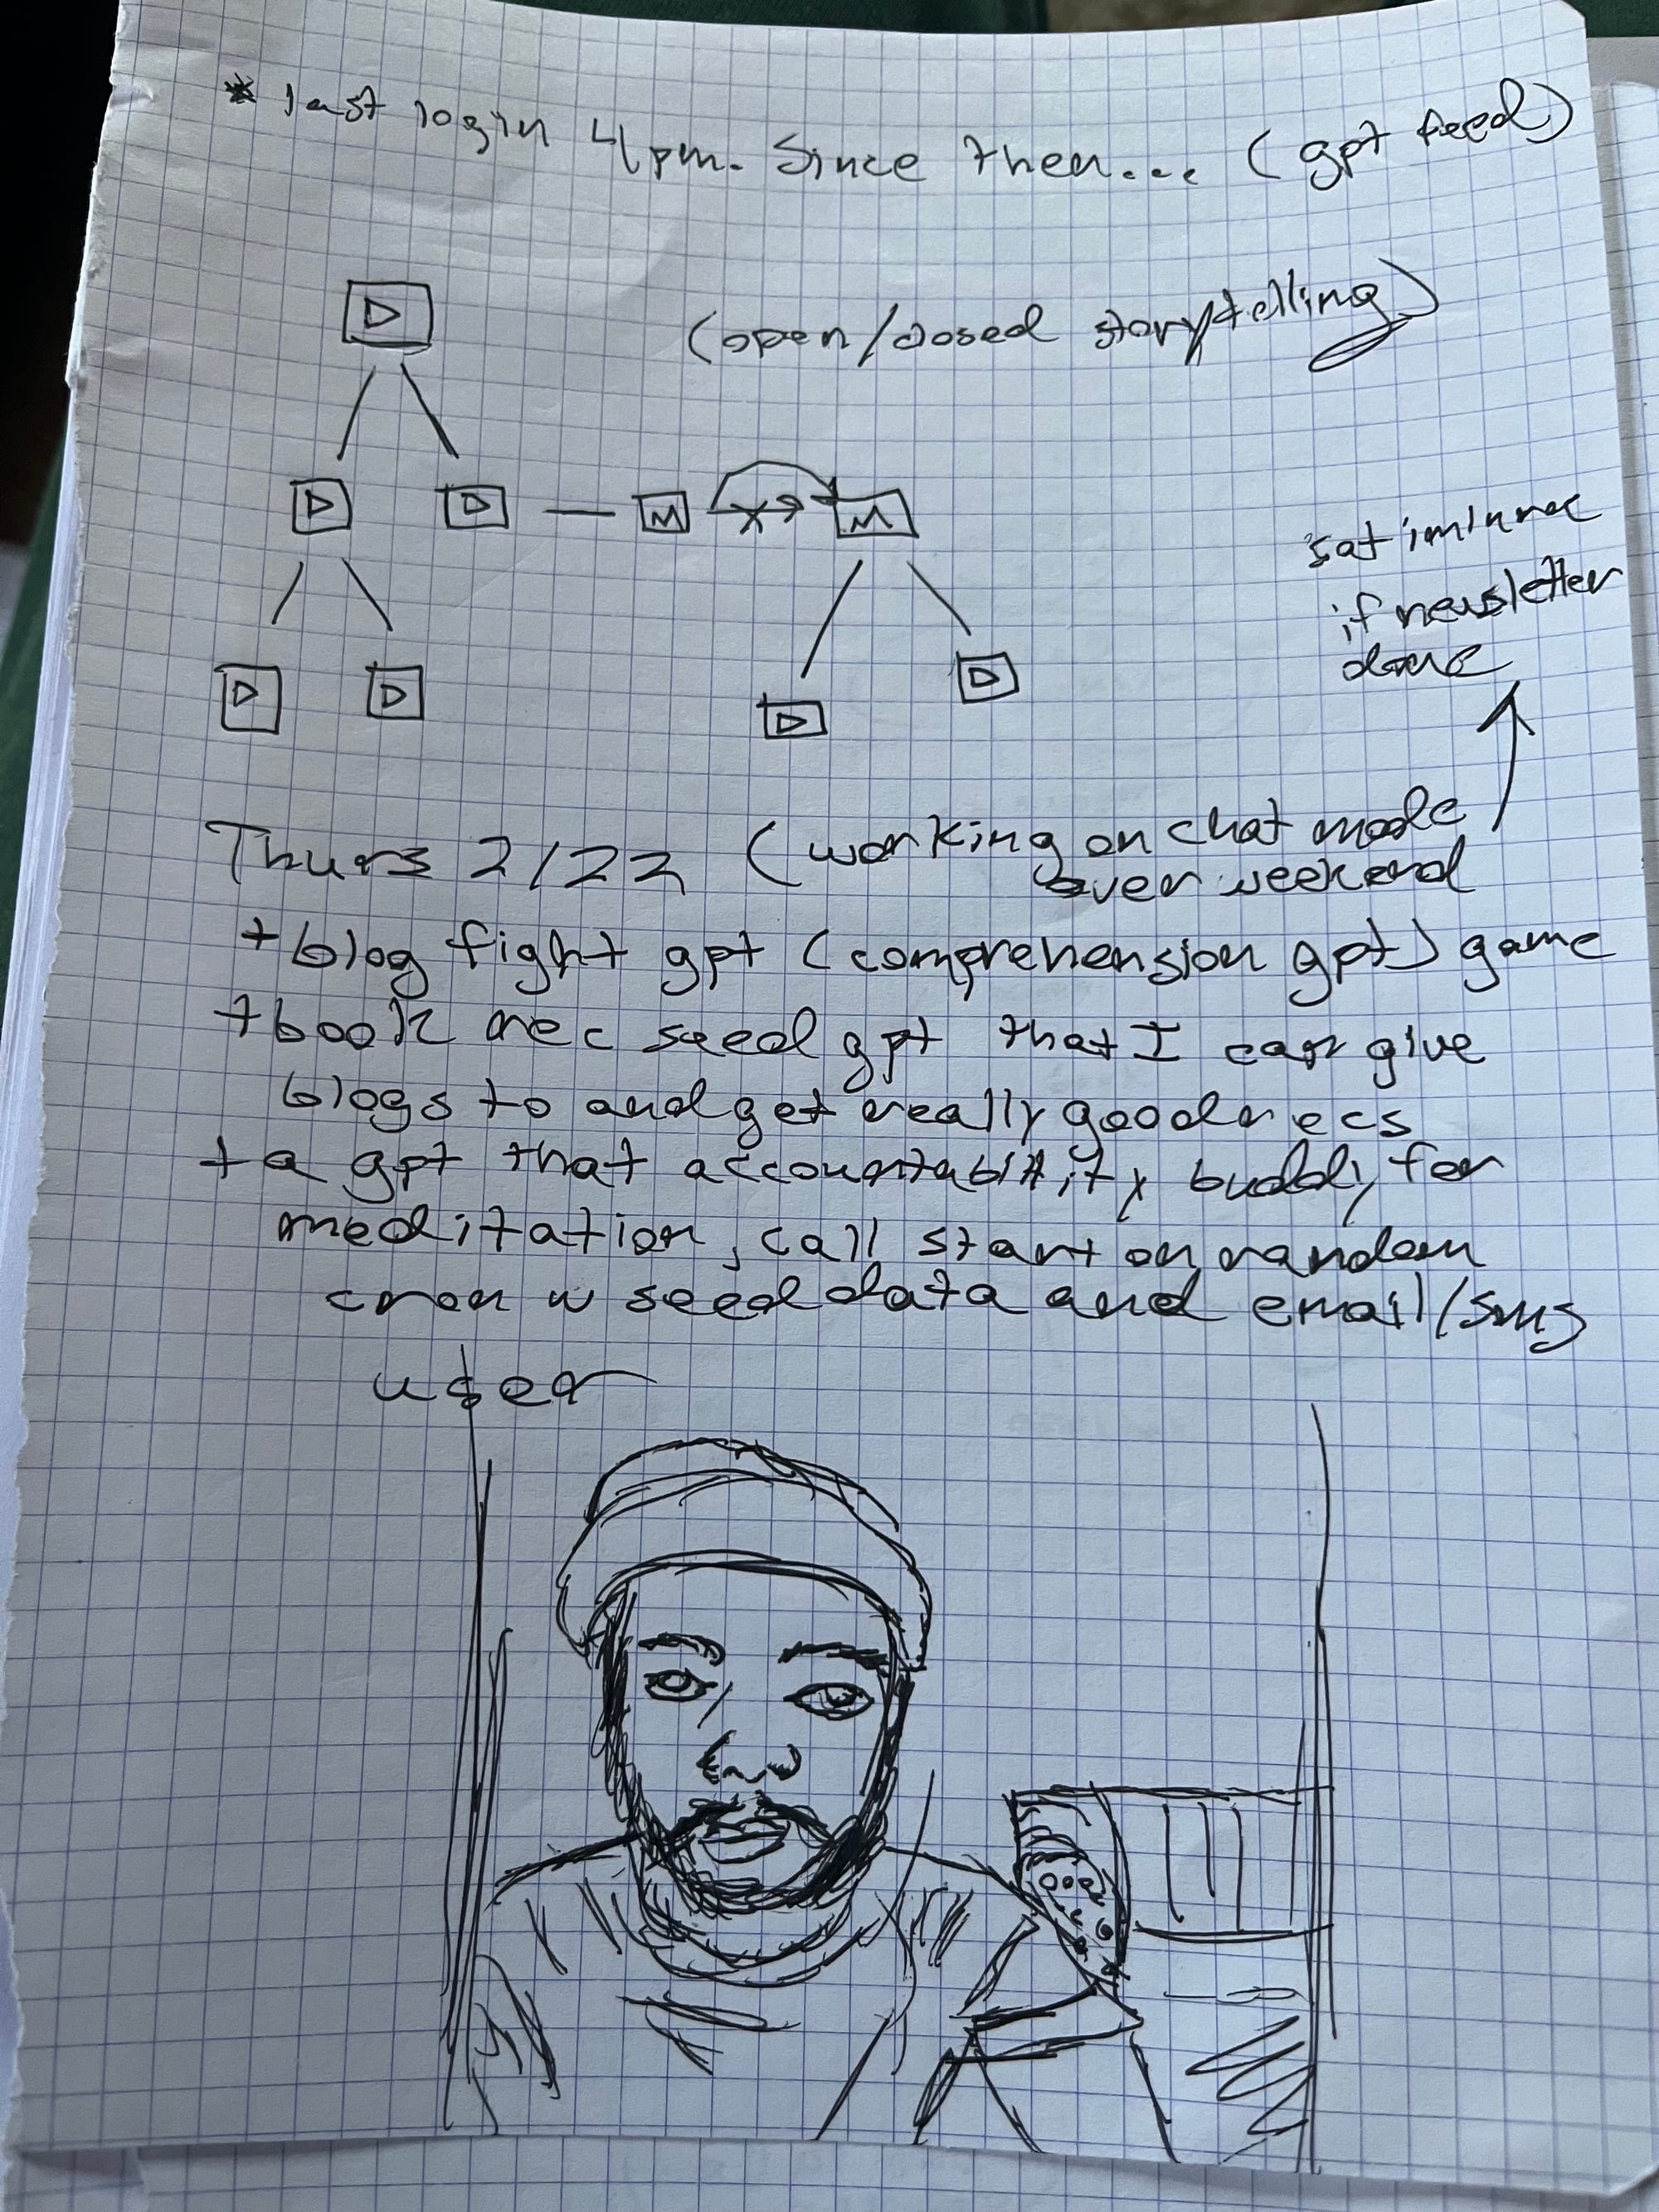 * last login 4pm. Since then... (gpt feed)
(open/closed storytelling)
M
M
sat
if newsletter
done
Thurs 2/22 (working on chat mode
over weekend
+ blog fight gpt (comprehension gpt) game
+ book rec seed gpt that I can give
blogs to and get really good recs
+ a gpt that accountability buddy for
meditation, call start on random
cron w seed data and email/sms
user